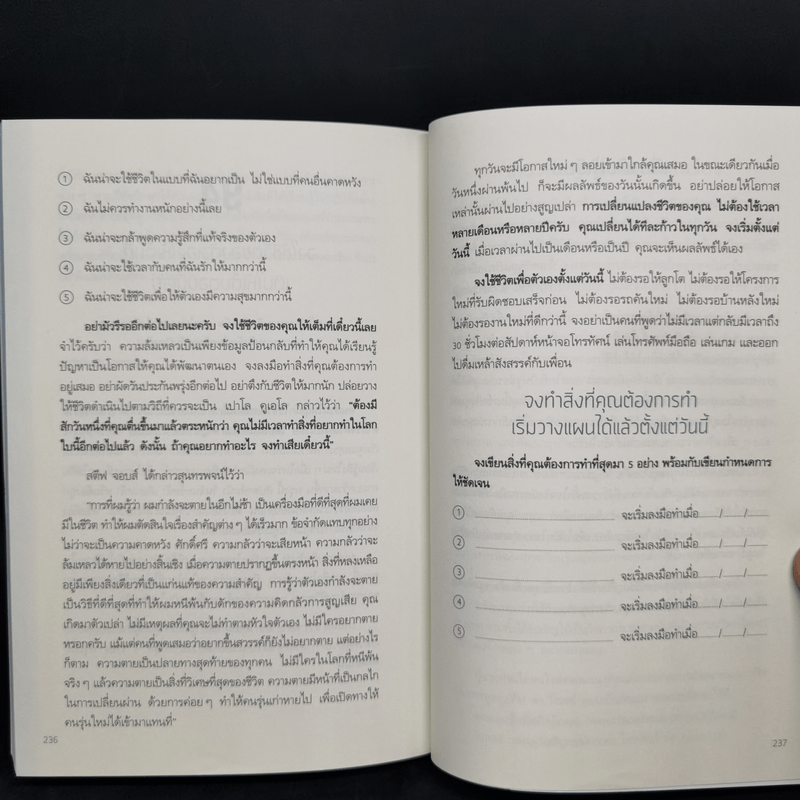 ① ฉันน่าจะใช้ชีวิตในแบบที่ฉันอยากเป็น ไม่ใช่แบบที่คนอื่นคาดหวัง
② ฉันไม่ควรทำงานหนักอย่างนี้เลย
③ ฉันน่าจะกล้าพูดความรู้สึกที่แท้จริงของตัวเอง
④ ฉันน่าจะใช้เวลากับคนที่ฉันรักให้มากกว่านี้
⑤ ฉันน่าจะใช้ชีวิตเพื่อให้ตัวเองมีความสุขมากกว่านี้
อย่ามัวรีรออีกต่อไปเลยนะครับ จงใช้ชีวิตของคุณให้เต็มที่เดี๋ยวนี้เลย
จำไว้ครับว่า ความล้มเหลวเป็นเพียงข้อมูลป้อนกลับที่ทำให้คุณได้เรียนรู้
ปัญหาเป็นโอกาสให้คุณได้พัฒนาตนเอง จงลงมือทำสิ่งที่คุณต้องการทำ
อยู่เสมอ อย่าผัดวันประกันพรุ่งอีกต่อไป อย่าตึงกับชีวิตให้มากนัก ปล่อยวาง
ให้ชีวิตดำเนินไปตามวิถีที่ควรจะเป็น เปาโล คูเอโล กล่าวไว้ว่า "ต้องมี
สักวันหนึ่งที่คุณตื่นขึ้นมาแล้วตระหนักว่า คุณไม่มีเวลาทำสิ่งที่อยากทำในโลก
ใบนี้อีกต่อไปแล้ว ดังนั้น ถ้าคุณอยากทำอะไร จงทำเสียเดี๋ยวนี้"
สตีฟ จอบส์ ได้กล่าวสุนทรพจน์ไว้ว่า
"การที่ผมรู้ว่า ผมกำลังจะตายในอีกไม่ช้า เป็นเครื่องมือที่ดีที่สุดที่ผมเคย
มีในชีวิต ทำให้ผมตัดสินใจเรื่องสำคัญต่าง ๆ ได้เร็วมาก ข้อจำกัดแทบทุกอย่าง
ไม่ว่าจะเป็นความคาดหวัง ศักดิ์ศรี ความกลัวว่าจะเสียหน้า ความกลัวว่าจะ
ล้มเหลวได้หายไปอย่างสิ้นเชิง เมื่อความตายปรากฏขึ้นตรงหน้า สิ่งที่หลงเหลือ
อยู่มีเพียงสิ่งเดียวที่เป็นแก่นแท้ของความสำคัญ การรู้ว่าตัวเองกำลังจะตาย
เป็นวิธีที่ดีที่สุดที่ทำให้ผมหนีพ้นกับดักของความคิดกลัวการสูญเสีย คุณ
เกิดมาตัวเปล่า ไม่มีเหตุผลที่คุณจะไม่ทำตามหัวใจตัวเอง ไม่มีใครอยากตาย
หรอกครับ แม้แต่คนที่พูดเสมอว่าอยากขึ้นสวรรค์ก็ยังไม่อยากตาย แต่อย่างไร
ก็ตาม ความตายเป็นปลายทางสุดท้ายของทุกคน ไม่มีใครในโลกที่หนีพ้น
จริง ๆ แล้วความตายเป็นสิ่งที่วิเศษที่สุดของชีวิต ความตายมีหน้าที่เป็นกลไก
ในการเปลี่ยนผ่าน ด้วยการค่อย ๆ ทำให้คนรุ่นเก่าหายไป เพื่อเปิดทางให้
คนรุ่นใหม่ได้เข้ามาแทนที่"
236
ทุกวันจะมีโอกาสใหม่ ๆ ลอยเข้ามาใกล้คุณเสมอ ในขณะเดียวกันเมื่อ
วันหนึ่งผ่านพ้นไป ก็จะมีผลลัพธ์ของวันนั้นเกิดขึ้น อย่าปล่อยให้โอกาส
เหล่านั้นผ่านไปอย่างสูญเปล่า การเปลี่ยนแปลงชีวิตของคุณ ไม่ต้องใช้เวลา
หลายเดือนหรือหลายปีครับ คุณเปลี่ยนได้ทีละก้าวในทุกวัน จงเริ่มตั้งแต่
วันนี้ เมื่อเวลาผ่านไปเป็นเดือนหรือเป็นปี คุณจะเห็นผลลัพธ์ได้เอง
จงใช้ชีวิตเพื่อตัวเองตั้งแต่วันนี้ ไม่ต้องรอให้ลูกโต ไม่ต้องรอให้โครงการ
ใหม่ที่รับผิดชอบเสร็จก่อน ไม่ต้องรอรถคันใหม่ ไม่ต้องรอบ้านหลังใหม่
ไม่ต้องรองานใหม่ที่ดีกว่านี้ จงอย่าเป็นคนที่พูดว่าไม่มีเวลาแต่กลับมีเวลาถึง
30 ชั่วโมงต่อสัปดาห์หน้าจอโทรทัศน์ เล่นโทรศัพท์มือถือ เล่นเกม และออก
ไปดื่มเหล้าสังสรรค์กับเพื่อน
จงทำสิ่งที่คุณต้องการทำ
เริ่มวางแผนได้แล้วตั้งแต่วันนี้
จงเขียนสิ่งที่คุณต้องการทำที่สุดมา 5 อย่าง พร้อมกับเขียนกำหนดการ
ให้ชัดเจน
① จะเริ่มลงมือทำเมื่อ / /
② จะเริ่มลงมือทำเมื่อ / /
③ จะเริ่มลงมือทำเมื่อ / /
④ จะเริ่มลงมือทำเมื่อ / /
⑤ จะเริ่มลงมือทำเมื่อ / /
237